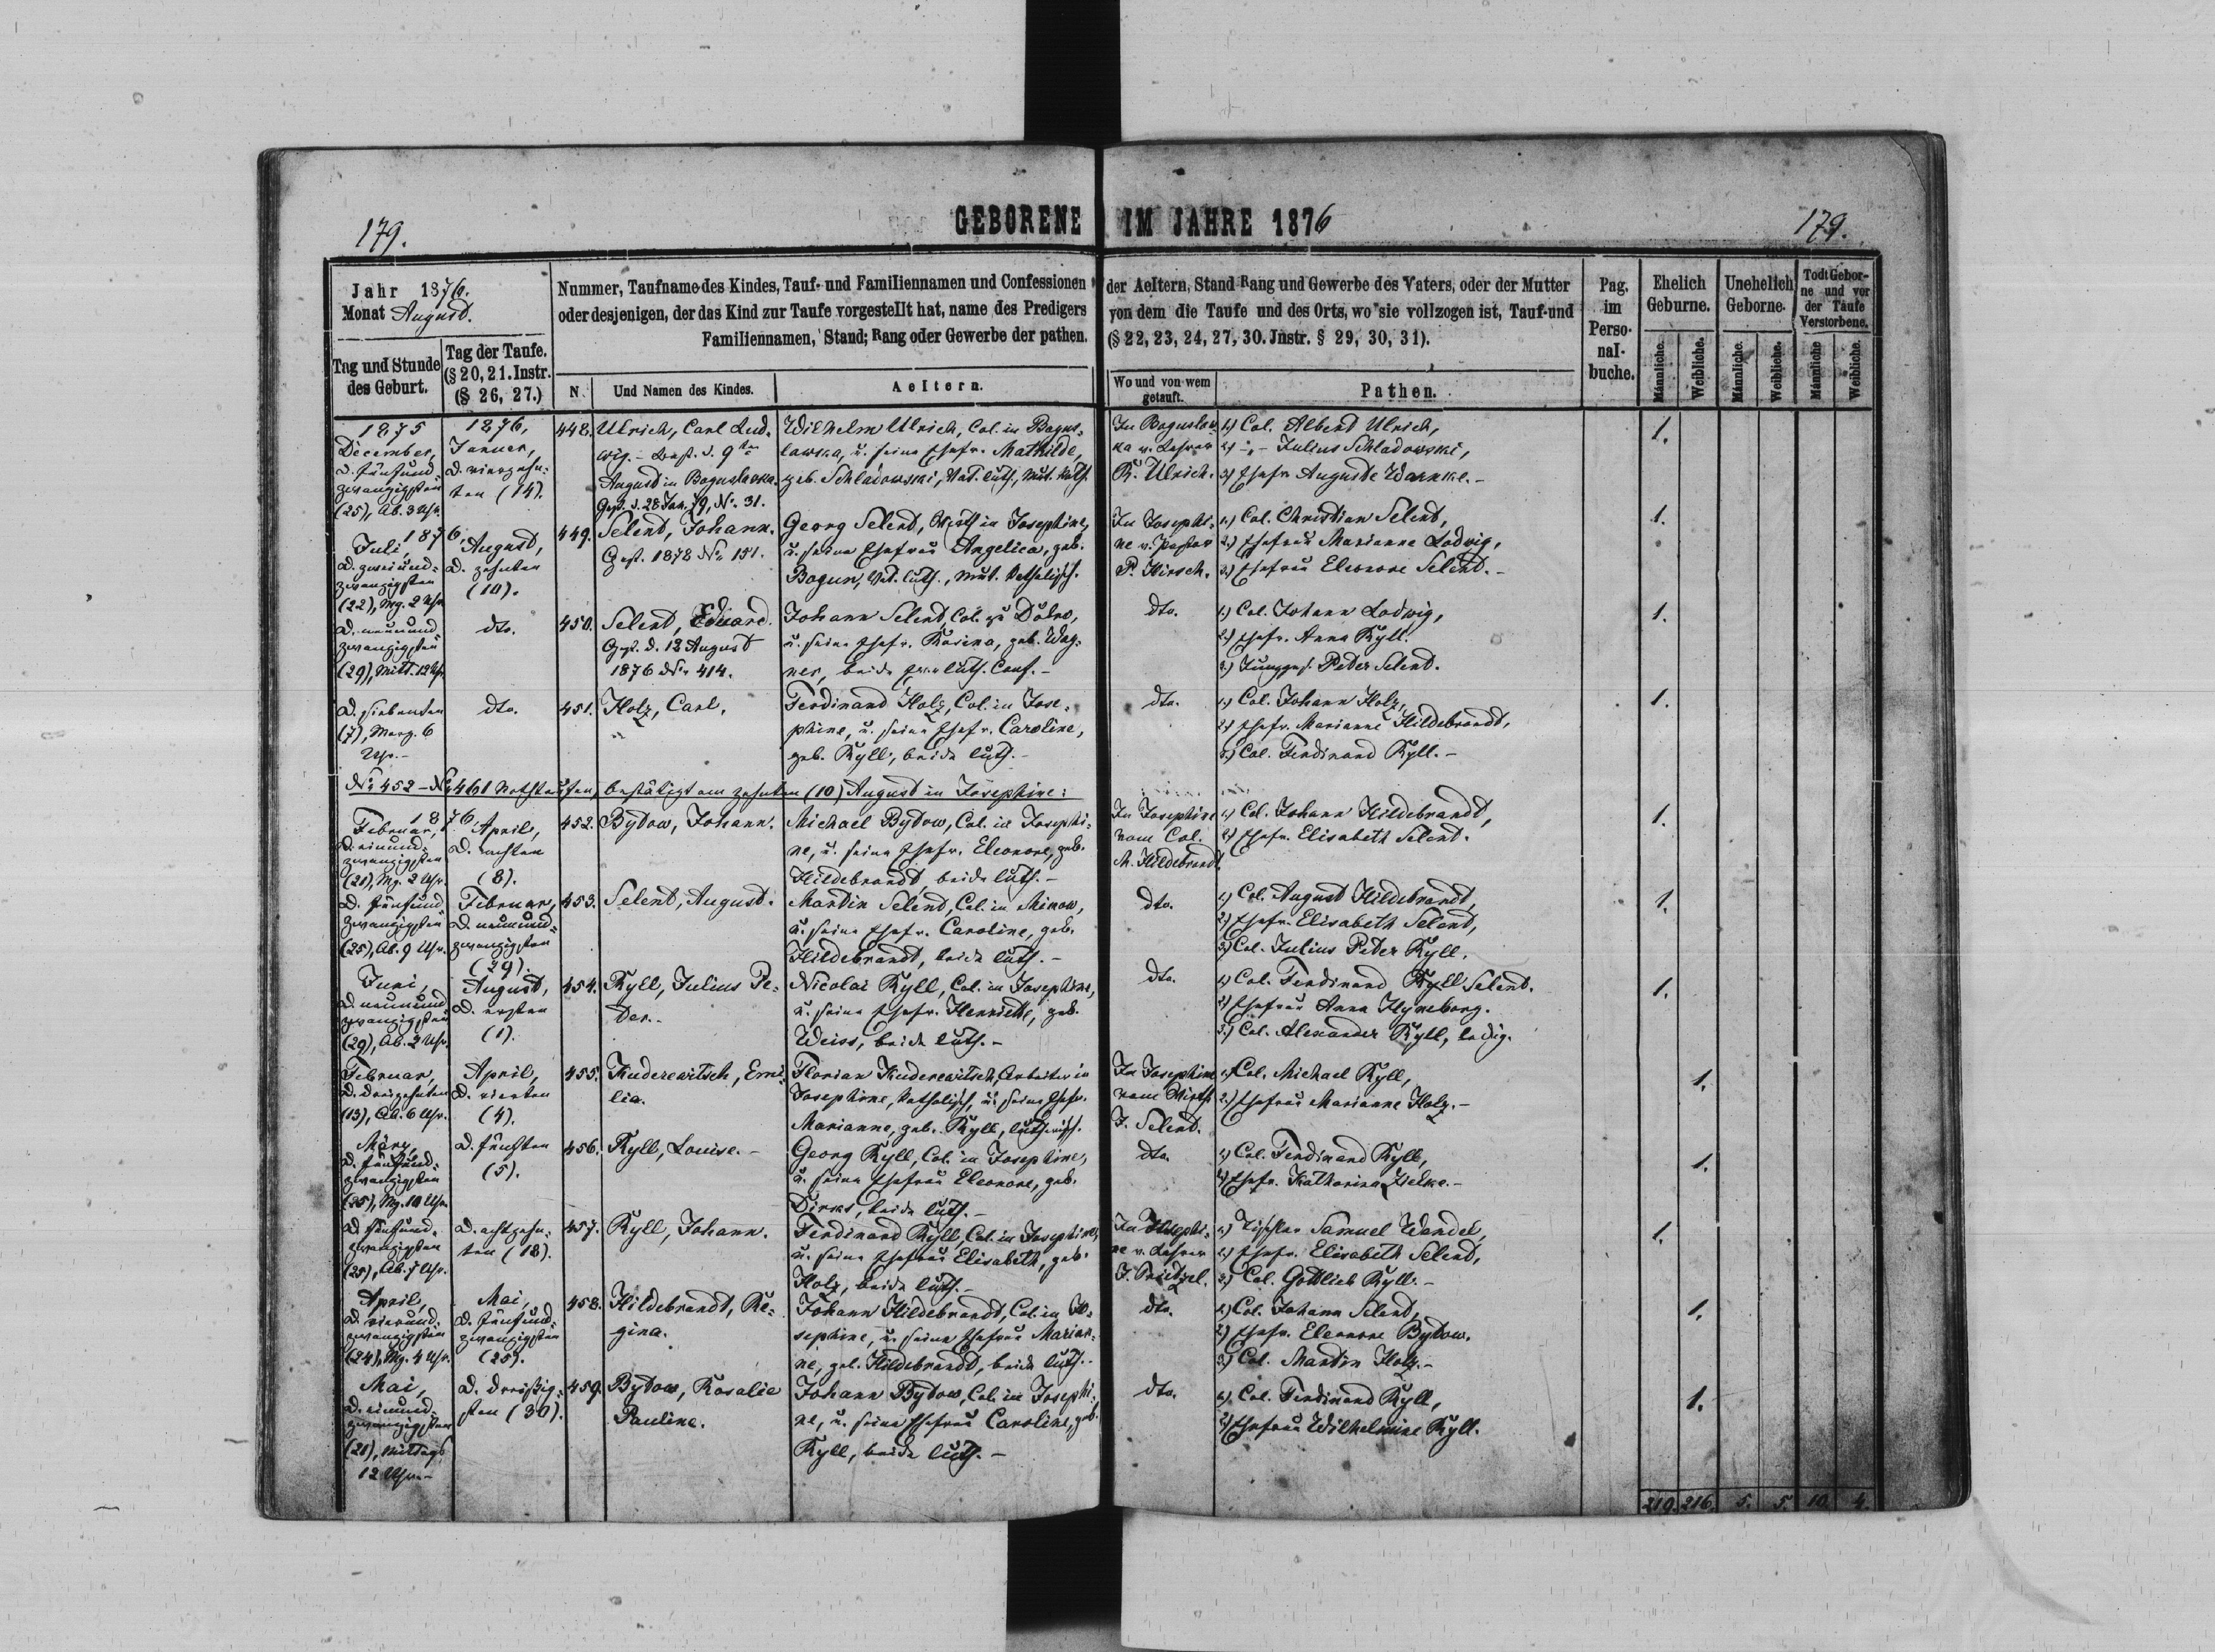 179.
GEBORENE IM JAHRE 1876
179.
Jahr 1876.
Monat August.
Tag und Stunde des Geburt.
Tag der Taufe. (§ 20, 21. Instr. (§ 26, 27.)
Nummer, Taufname des Kindes, Tauf- und Familiennamen und Confessionen der Aeltern, Stand Rang und Gewerbe des Vaters, oder der Mutter
oder desjenigen, der das Kind zur Taufe vorgestellt hat, name des Predigers von dem die Taufe und des Orts, wo sie vollzogen ist, Tauf-und
Familiennamen, Stand; Rang oder Gewerbe der pathen. (§ 22, 23, 24, 27, 30. Jnstr. § 29, 30, 31).
N.
Und Namen des Kindes.
Aeltern.
Wo und von wem getauft.
Pathen.
Pag. im Perso-nal-buche.
Ehelich Geburne.
Unehelich Geborne.
Todt Gebor-ne und vor der Taufe Verstorbene.
Männliche.
Weibliche.
Männliche.
Weibliche.
Männliche
Weibliche.
1875
December,
d. fünfund
zwanzigsten
(25), Ab. 3 Uhr.
1876,
Januer,
d. vierzehn-
ten (14).
448.
Ulrich, Carl Lud-
wig. - Best. d. 9ten
August in Boguslawka.
Gest. d. 28 Jan. 79, No. 31.
Wilhelm Ulrich, Col. in Bogus-
lawka, u. seine Ehefr. Mathilde,
geb. Schladowski, Vat. luth., Mut. kath.
In Boguslaw-
ka v. Lehrer
R. Ulrich.
1) Col. Albert Ulrich,
2) -"- Julius Schladowski,
3) Ehefr. Auguste Warnke. -
1.
1876,
Juli,
d. zweiund-
zwanzigsten
(22), Mg. 2 Uhr
August,
d. zehnten
(10).
449.
Selent, Johann.
Gest. 1878 No. 151.
Georg Selent, Wirth in Josephine,
u. seine Ehefrau Angelica, geb.
Bogun, Vat. luth., Mut. katholisch.
In Josephi-
ne v. Pastor
P. Hirsch.
1.) Col. Christian Selent,
2.) Ehefrau Marianne Ladwig,
3.) Ehefrau Eleonore Selent. -
1.
d. neunund
zwanzigsten
(29), Mitt. 12 Uhr
dto.
450.
Selent, Eduard.
Gest. d. 12 August
1876 No. 414.
Johann Selent, Col. zu
u. seine Ehefr. Rosina, geb. Wag-
ner, beide luth. Conf. -
dto.
1.) Col. Johann Ladwig,
2.) Ehefr. Anna Ryll.
3.) Junggs. Peter Selent.
1.
d. siebenten
(7), Morg. 6
Uhr. -
dto.
451.
Holz, Carl.
Ferdinand Holz, Col. in Jose-
phine, u. seine Ehefr. Caroline,
geb. Ryll, beide luth. -
dto.
1.) Col. Johann Holz,
2.) Ehefr. Marianne Hildebrandt,
3.) Col. Ferdinand Ryll. -
1.
No. 452 - No. 461 Nothtaufen, bestätigt am zehnten (10) August in Josephine:
1876.
Februar,
d. einund-
zwanzigsten
(21), Mg. 2 Uhr.
April,
d. achten
(8).
452.
Bytow, Johann.
Michael Bytow, Col. in Josephi-
ne, u. seine Ehefr. Eleonore, geb.
Hildebrandt, beide luth. -
In Josephine
vom Col.
M. Hildebrandt.
1.) Col. Johann Hildebrandt,
2) Ehefr. Elisabeth Selent.
1.
d. fünfund
zwanzigsten
(25), Ab. 9 Uhr.
Februar,
d. neunund-
zwanzigsten
(29).
453.
Selent, August.
Martin Selent, Col. in Minow,
u. seine Ehefr. Caroline, geb.
Hildebrandt, beide luth. -
dto.
1) Col. August Hildebrandt,
2) Ehefr. Elisabeth Selent,
3) Col. Julius Peter Ryll.
1.
Juni,
d. neunund
zwanzigsten
(29), Ab. 2 Uhr.
August,
d. ersten
(1).
454.
Ryll, Julius Pe-
ter. -
Nicolai Ryll, Col. in Josephine,
u. seine Ehefr. Henriette, geb.
Weiss, beide luth. -
dto.
1) Col. Ferdinand Ryll Selent.
2) Ehefrau Anna Hyneborg.
3.) Col. Alexander Ryll, ledig.
1.
Februar,
d. dreizehnten
(13), Ab. 6 Uhr.
April,
d. vierten
(4).
455.
Kuderewitsch, Emi-
lia.
Florian Kuderewitsch, Arbeiter in
Josephine, katholisch, u. seine Ehefr.
Marianne, geb. Ryll, lutherisch.
In Josephine
vom Wirth
J. Selent.
1) Col. Michael Ryll,
2.) Ehefrau Marianne Holz. -
1.
März,
d. fünfund-
zwanzigsten
(25), Mg. 10 Uhr.
d. fünften
(5).
456.
Ryll, Louise. -
Georg Ryll, Col. in Josephine,
u. seine Ehefrau Eleonore, geb.
Dirks, beide luth. -
dto.
1) Col. Ferdinand Ryll,
2) Ehefr. Katharina Zielke. -
1.
d. fünfund-
zwanzigsten
(25), Ab. 7 Uhr.
d. achtzehn-
ten (18).
457.
Ryll, Johann.
Ferdinand Ryll, Col. in Josephine,
u. seine Ehefrau Elisabeth, geb.
Holz, beide luth. -
In Josephi-
ne v. Lehrer
1) Tischler Samuel Wandel,
2) Ehefr. Elisabeth Selent,
3) Col. Gottlieb Ryll. -
1.
April,
d. vierund-
zwanzigsten
(24), Mg. 4 Uhr.
Mai,
d. fünfund-
zwanzigsten
(25).
458.
Hildebrandt, Re-
gina.
Johann Hildebrandt, Col. in Jo-
sephine, u. seine Ehefrau Marian-
ne, geb. Hildebrandt, beide luth. -
dto.
1) Col. Johann Selent,
2) Ehefr. Eleonore Bytow.
3.) Col. Martin Holz. -
1.
Mai,
d. einund-
zwanzigsten
(21), Mittags
12 Uhr. -
d. dreißig-
sten (30).
459.
Bytow, Rosalie
Pauline.
Johann Bytow, Col. in Josephi-
ne, u. seine Ehefrau Caroline, geb.
Ryll, beide luth. -
dto.
1) Col. Ferdinand Ryll,
2) Ehefrau Wilhelmine Ryll.
1.
219. 216. 5. 5. 10. 4.